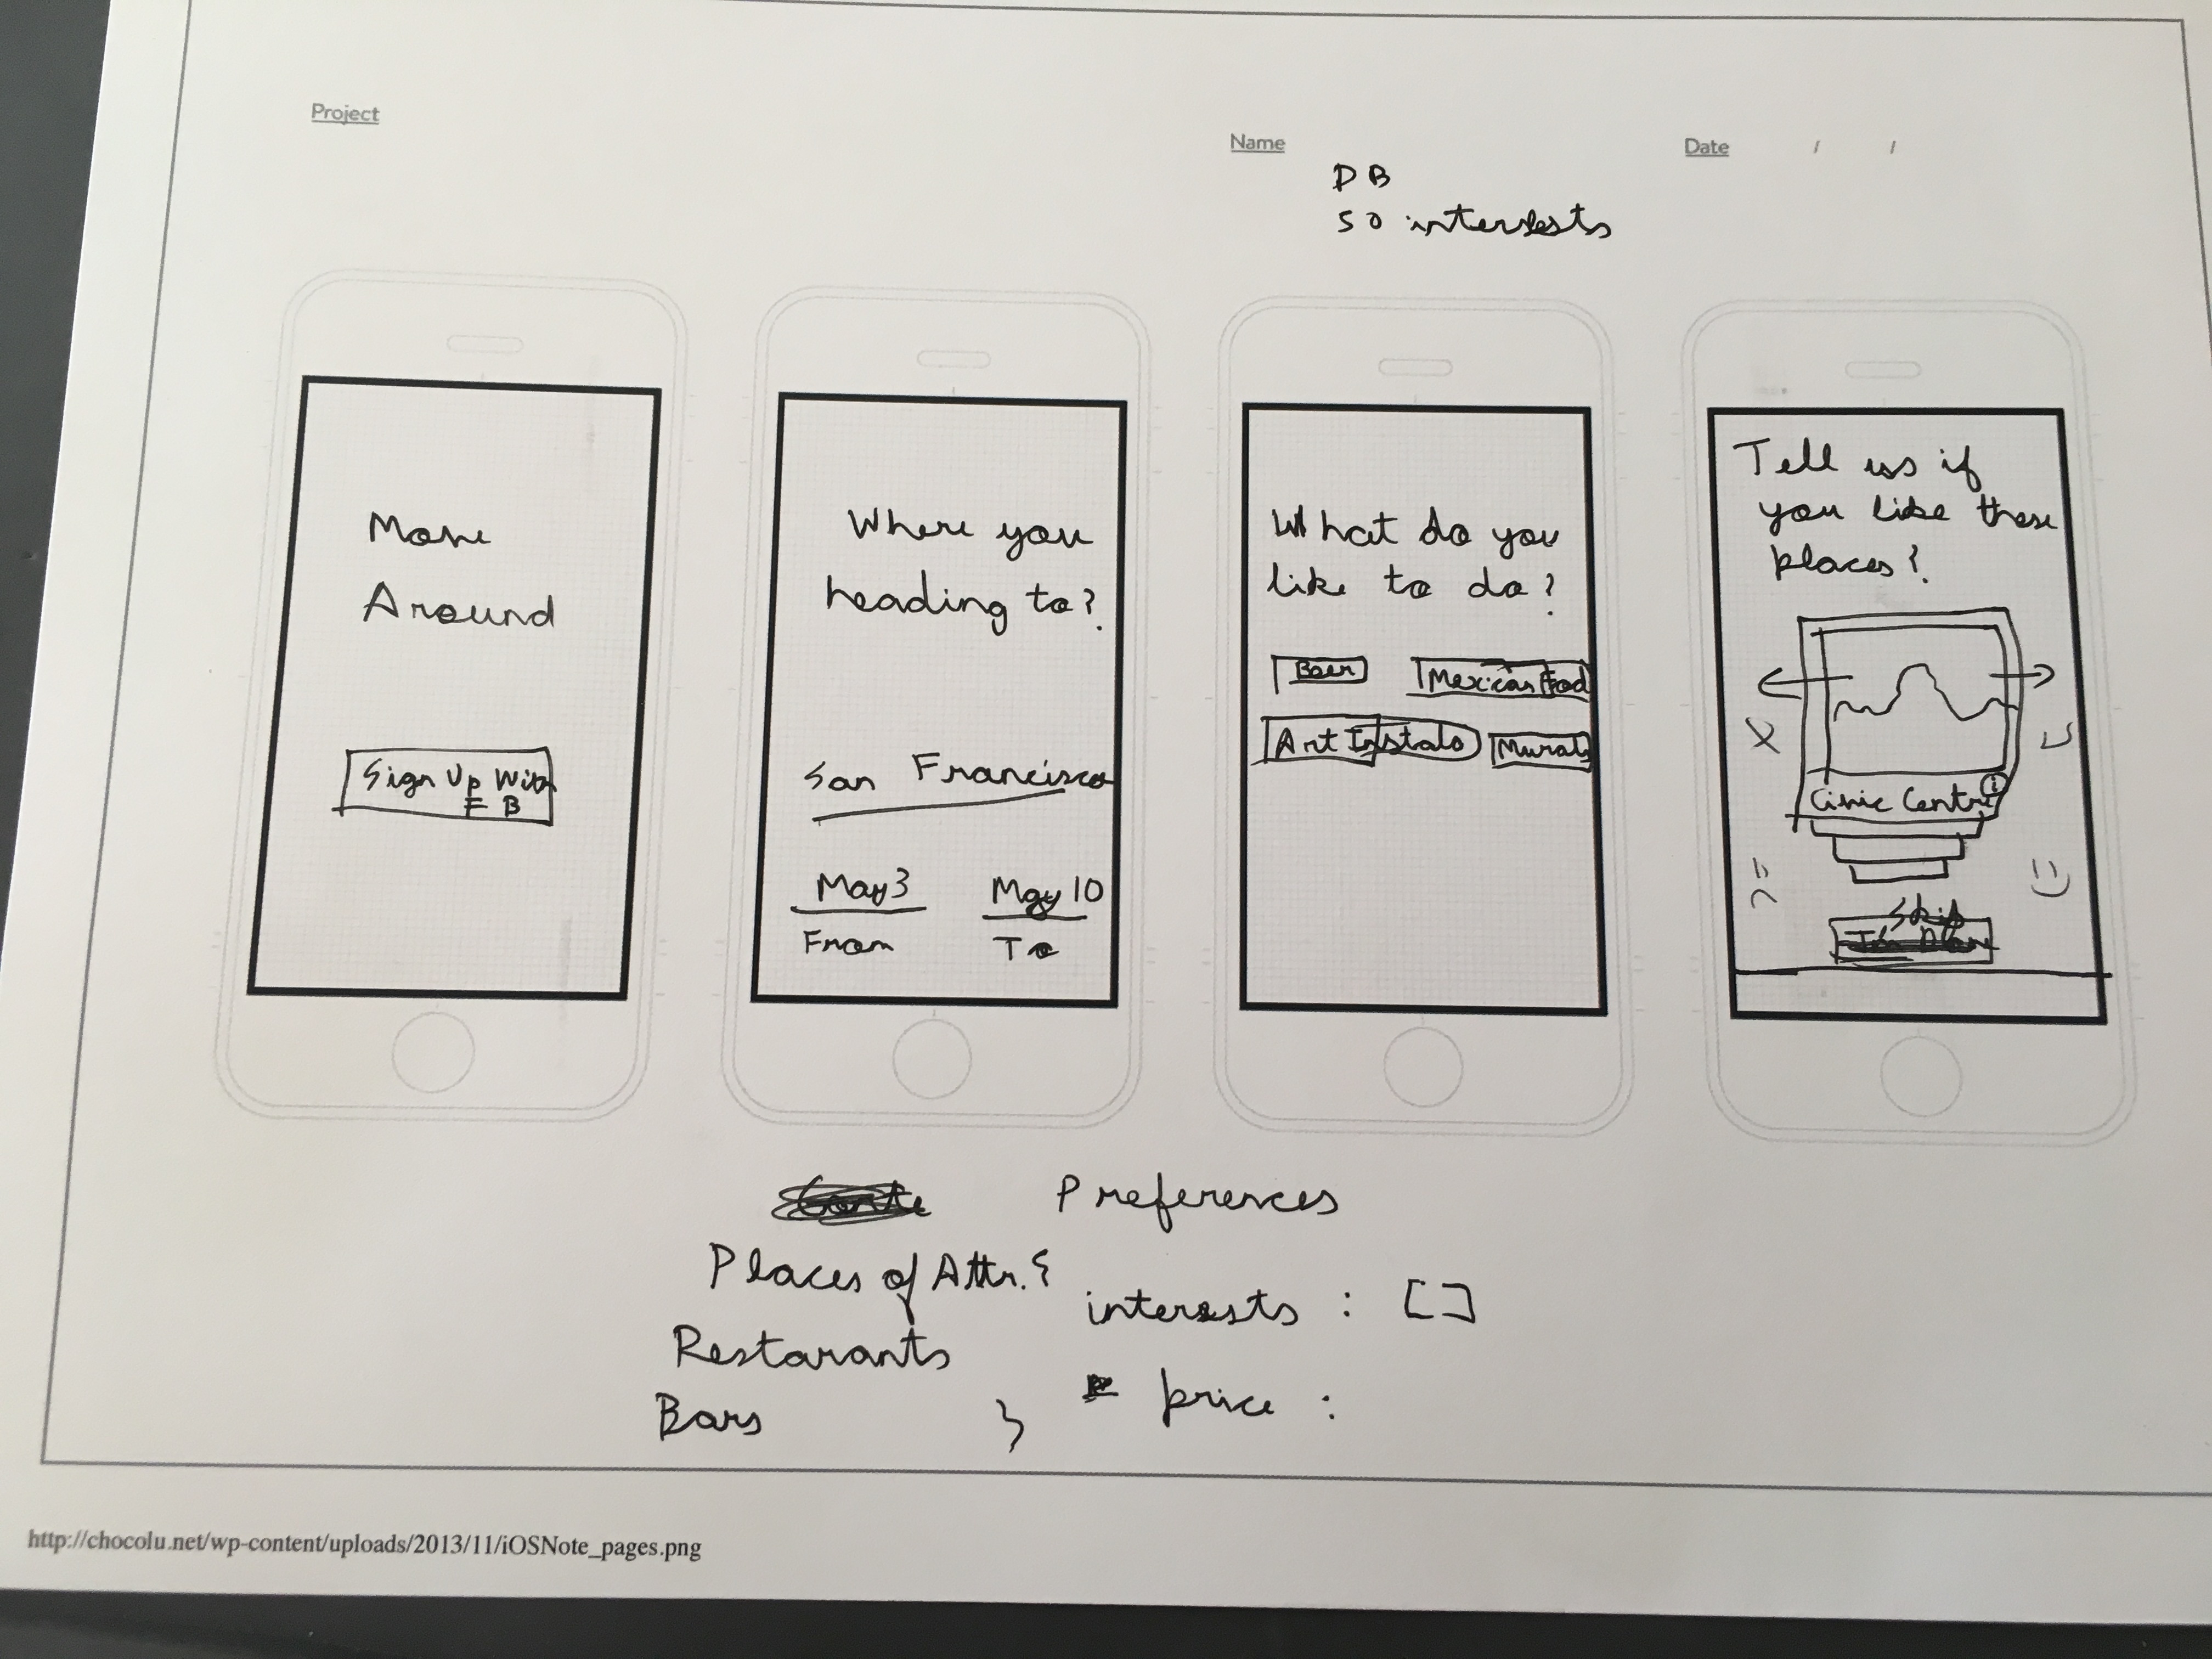 Project
Name
Date / /
DB
50 interests
Move
Around
Sign Up With
FB
Where you
heading to?
San Francisco
May 3
May 10
From
To
What do you
like to do?
Beer
Mexican Food
Art Instals
Murals
Tell us if
you like these
places?
Civic Centre
i
Skip
Preferences
Places of Attr. {
interests : []
Restarants
price :
Bars
}
http://chocolu.net/wp-content/uploads/2013/11/iOSNote_pages.png